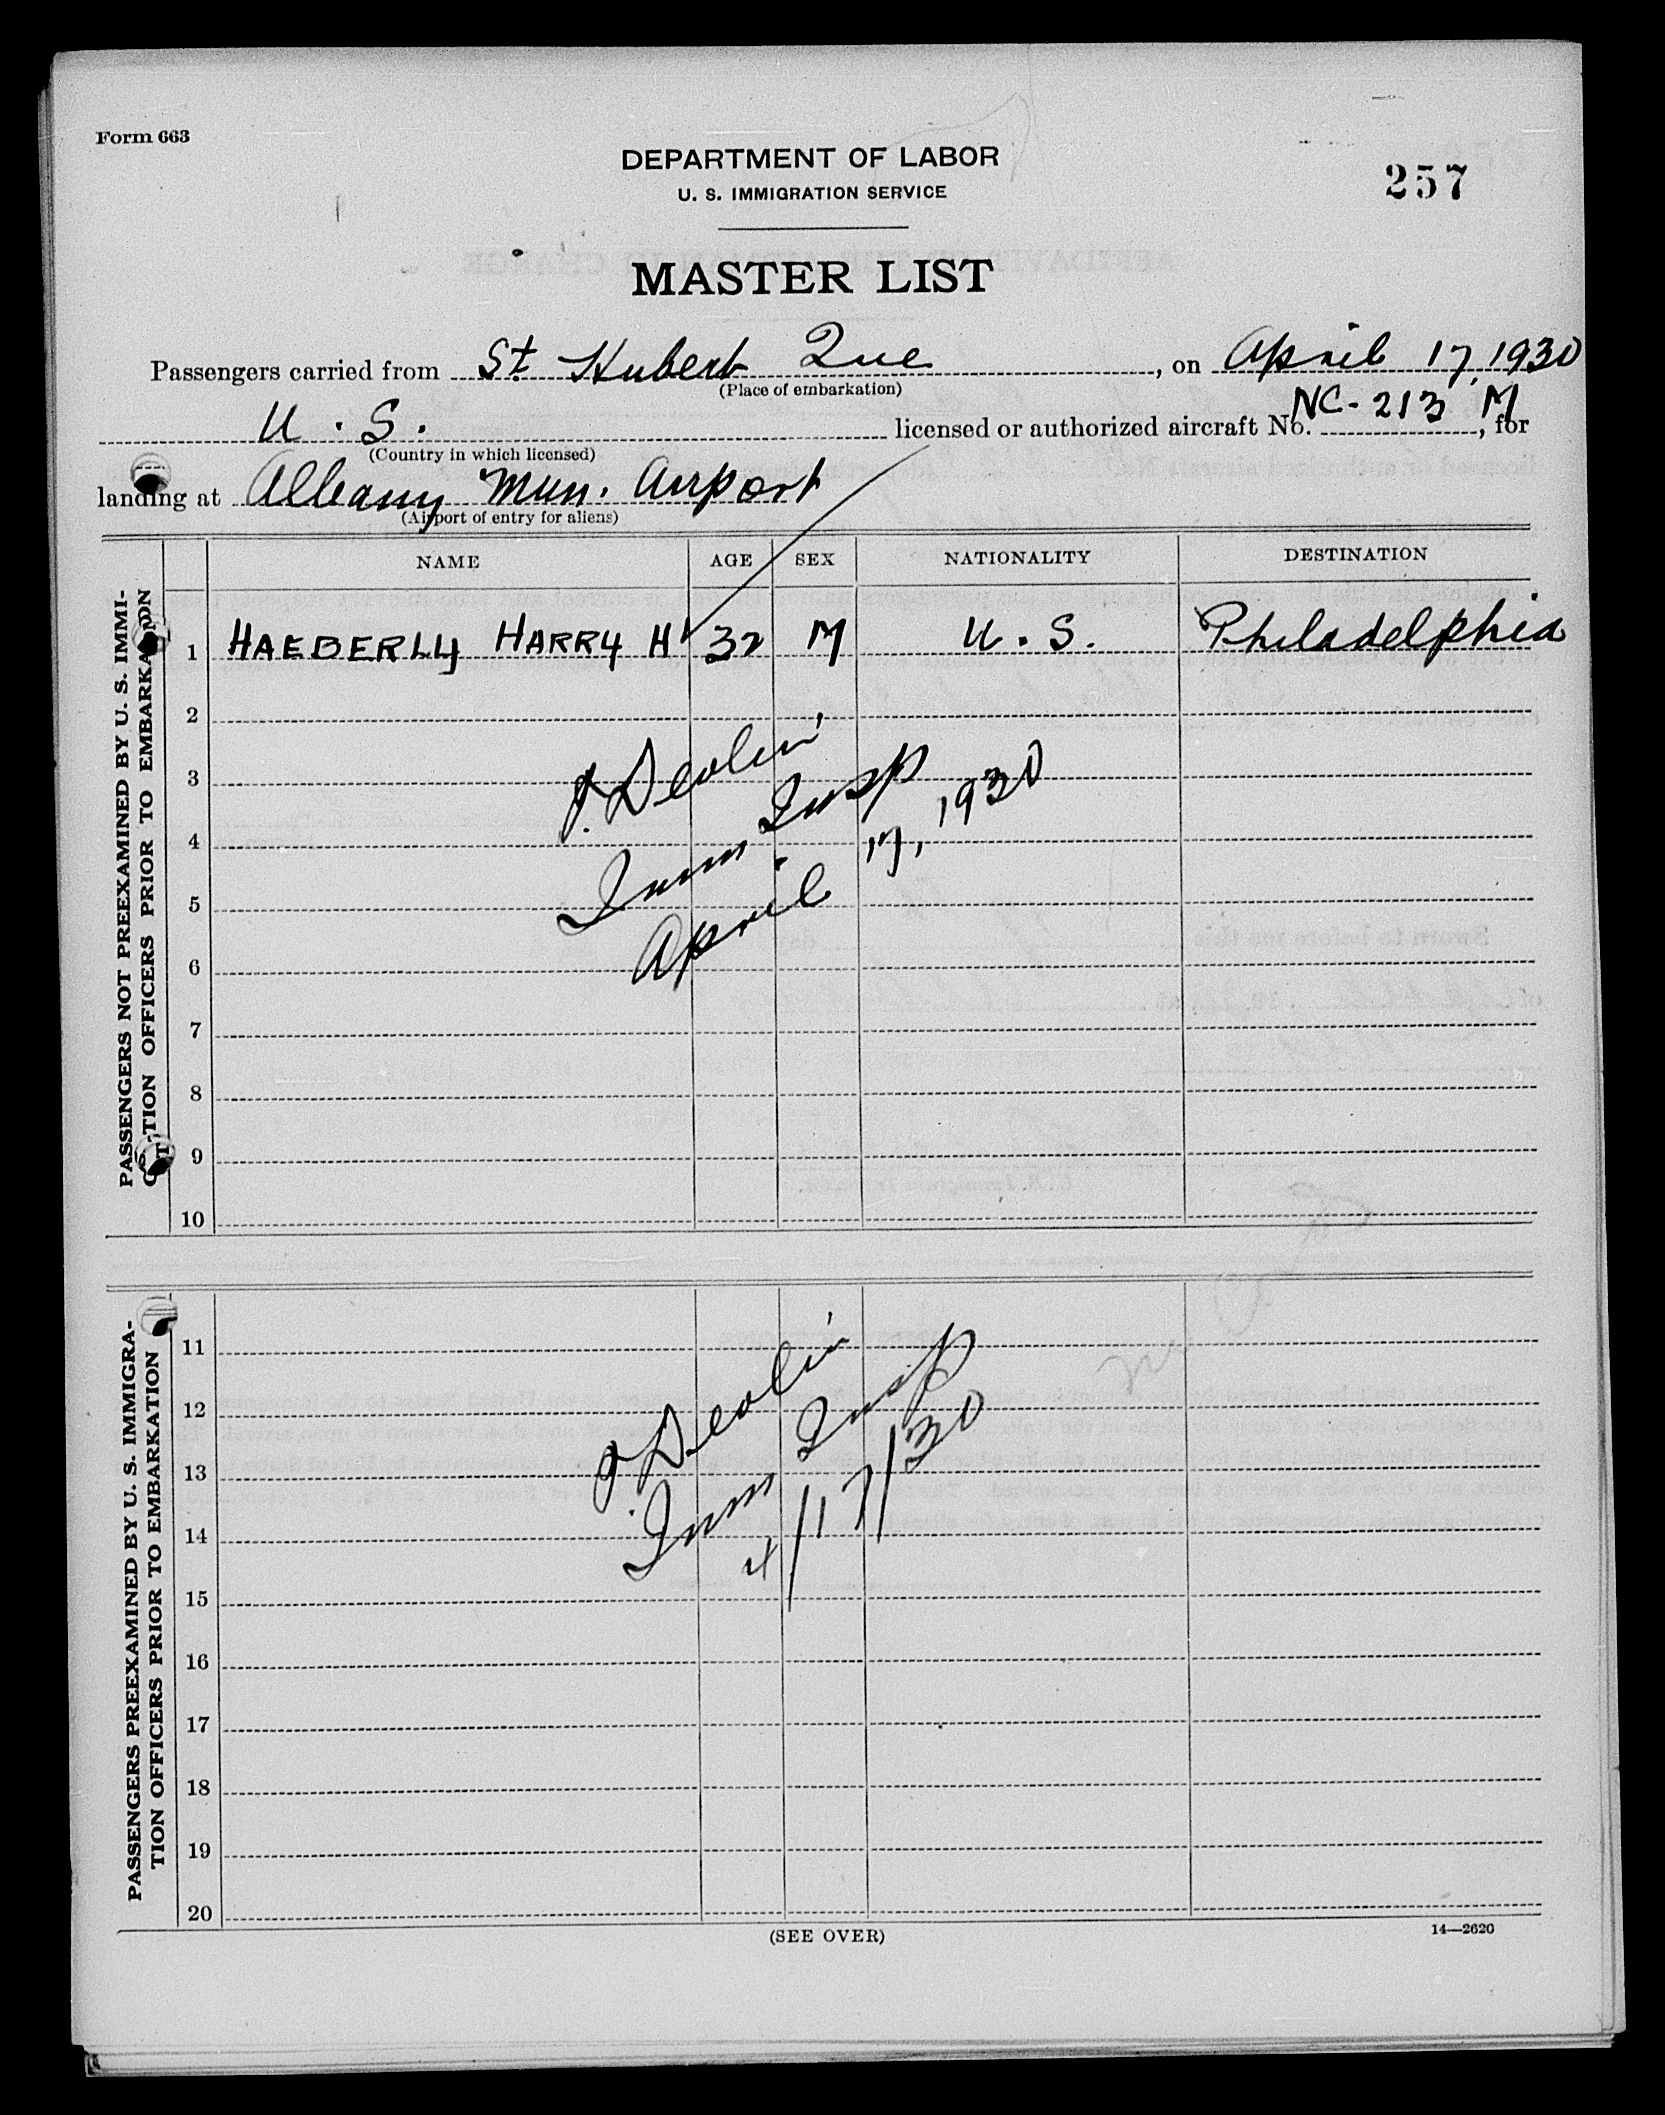 Form 663
DEPARTMENT OF LABOR
U. S. IMMIGRATION SERVICE
257
MASTER LIST
Passengers carried from St. Hubert Que, on April 17, 1930
(Place of embarkation)
U. S. licensed or authorized aircraft No. NC-213 M, for
(Country in which licensed)
landing at Albany Mun. Airport
(Airport of entry for aliens)
NAME AGE SEX NATIONALITY DESTINATION
PASSENGERS NOT PREEXAMINED BY U. S. IMMI-
TION OFFICERS PRIOR TO EMBARKA
1 HAEBERLY HARRY H 32 M U. S. Philadelphia
2
3
4
5
6
7
8
9
10
J. Devlin
Imm Insp
April 17, 1930
PASSENGERS PREEXAMINED BY U. S. IMMIGRA-
TION OFFICERS PRIOR TO EMBARKATION
11
12
13
14
15
16
17
18
19
20
J. Devlin
Imm Insp
4/17/30
(SEE OVER)
14—2620